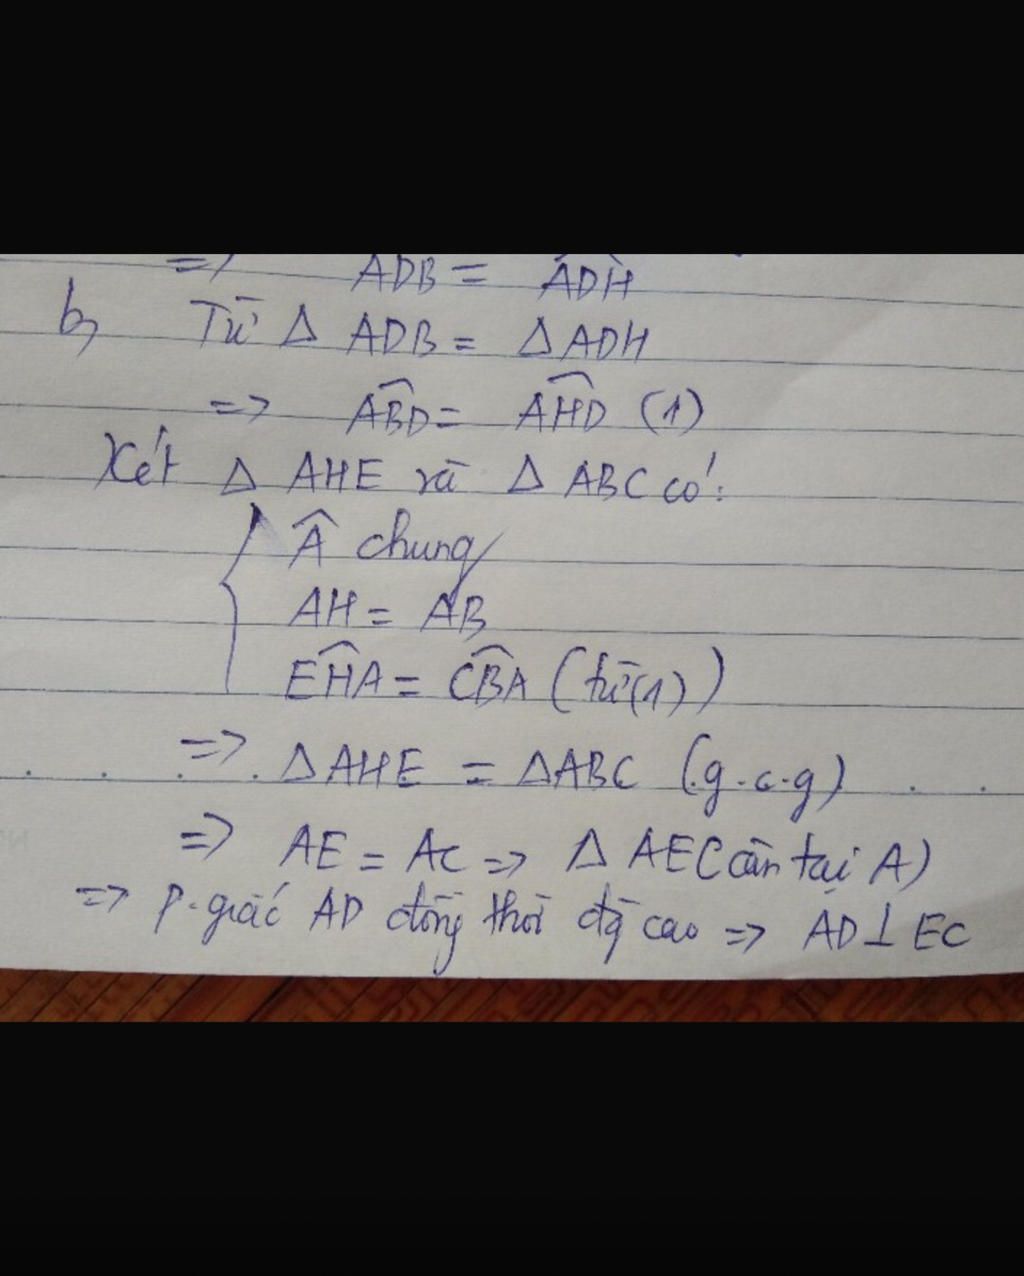 => ADB = ADH
b, Từ Δ ADB = Δ ADH
=> \widehat{ABD} = \widehat{AHD} (1)
Xét Δ AHE và Δ ABC có:
{ Â chung
AH = AB
\widehat{EHA} = \widehat{CBA} (từ (1))
=> Δ AHE = Δ ABC (g.c.g)
=> AE = AC => Δ AEC cân tại A)
=> P.giác AD đồng thời đg cao => AD ⊥ EC